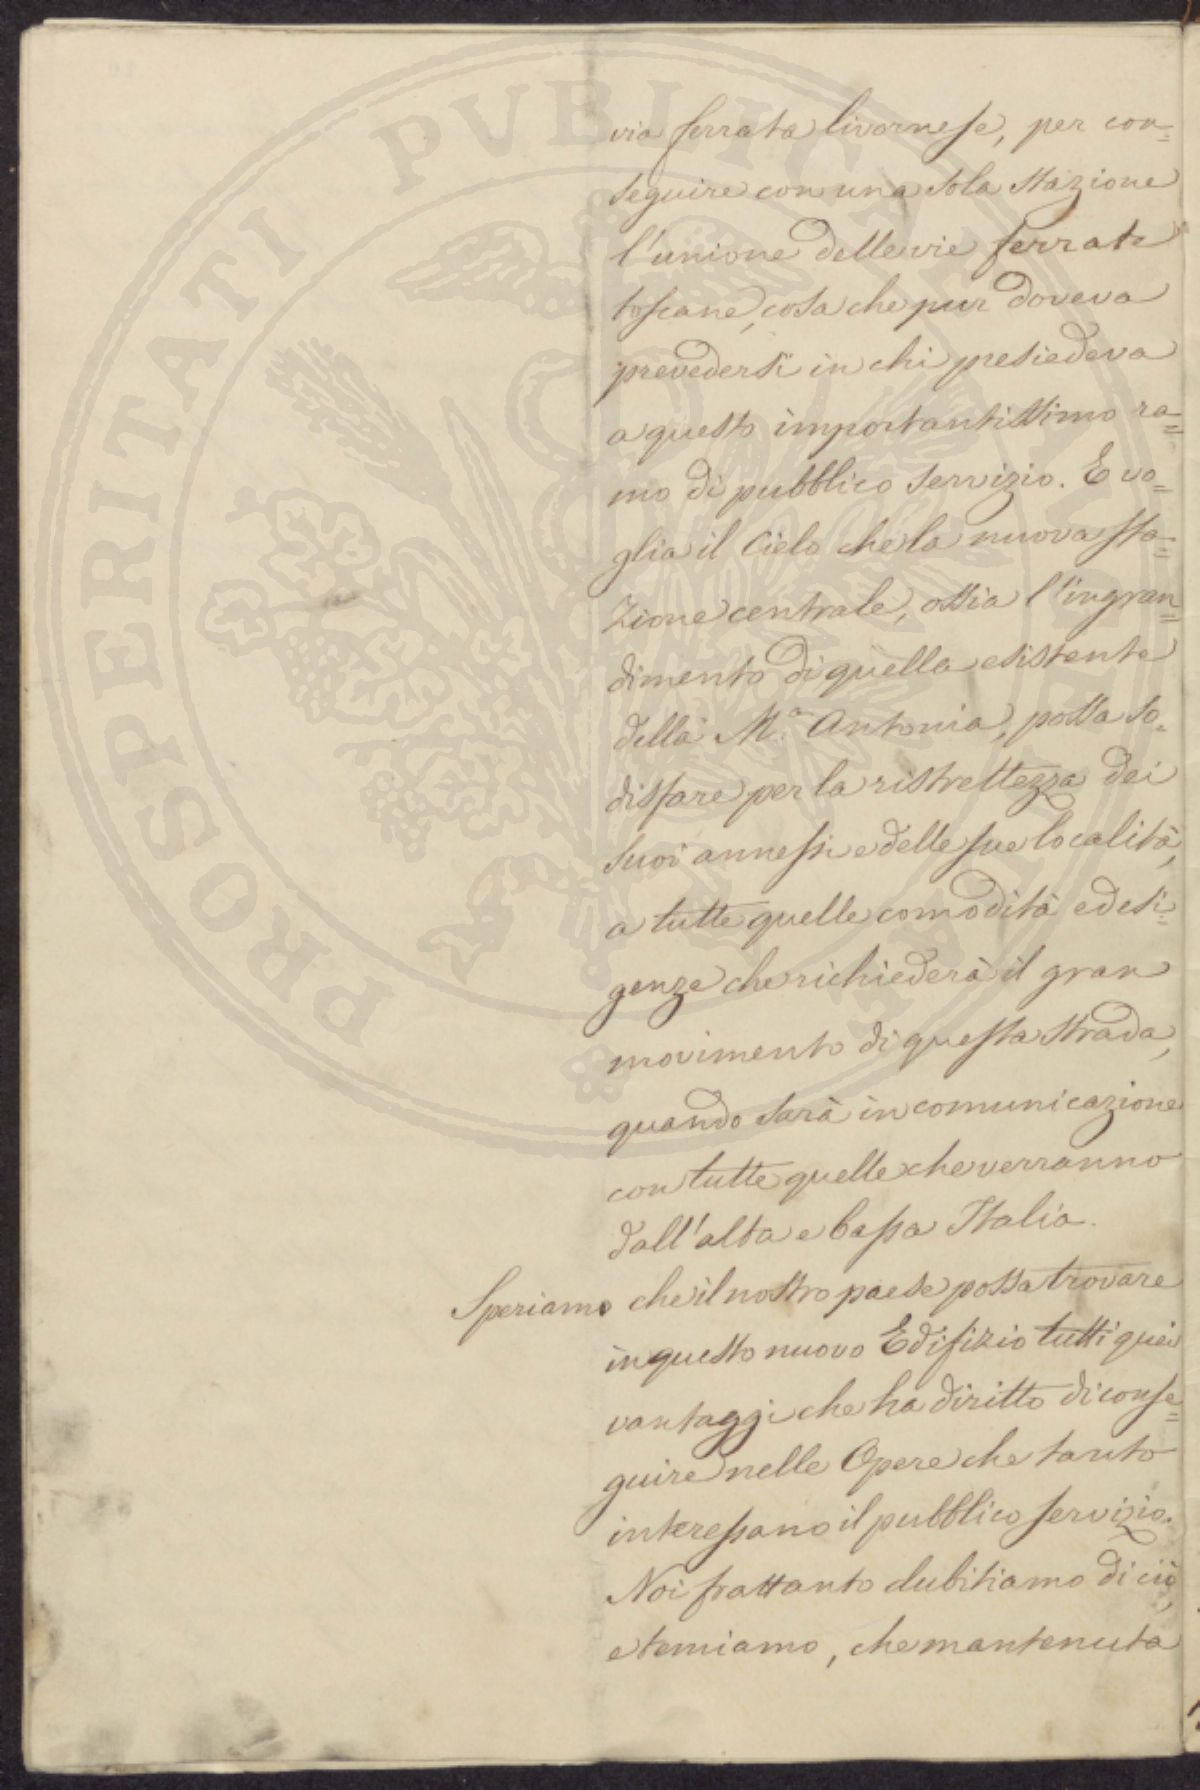 via ferrata livornese, per con=
seguire con una sola stazione
l'unione delle vie ferrate
toscane, cosa che pur doveva
prevedersi in chi presiedeva
a questo importantissimo ra=
mo di pubblico servizio. E vo=
glia il Cielo che la nuova sta=
zione centrale, ossia l'ingran=
dimento di quella esistente
della M.a Antonia, possa so=
disfare per la ristrettezza dei
suoi annessi e delle sue località,
a tutte quelle comodità ed esi=
genze che richiederà il gran
movimento di questa strada,
quando sarà in comunicazione
con tutte quelle che verranno
dall'alta e bassa Italia.
Speriamo che il nostro paese possa trovare
in questo nuovo Edifizio tutti quei
vantaggi che ha diritto di conse=
guire nelle Opere che tanto
interessano il pubblico servizio.
Noi frattanto dubitiamo di ciò,
e temiamo, che mantenuta
PROSPERITATI PVBLICAE